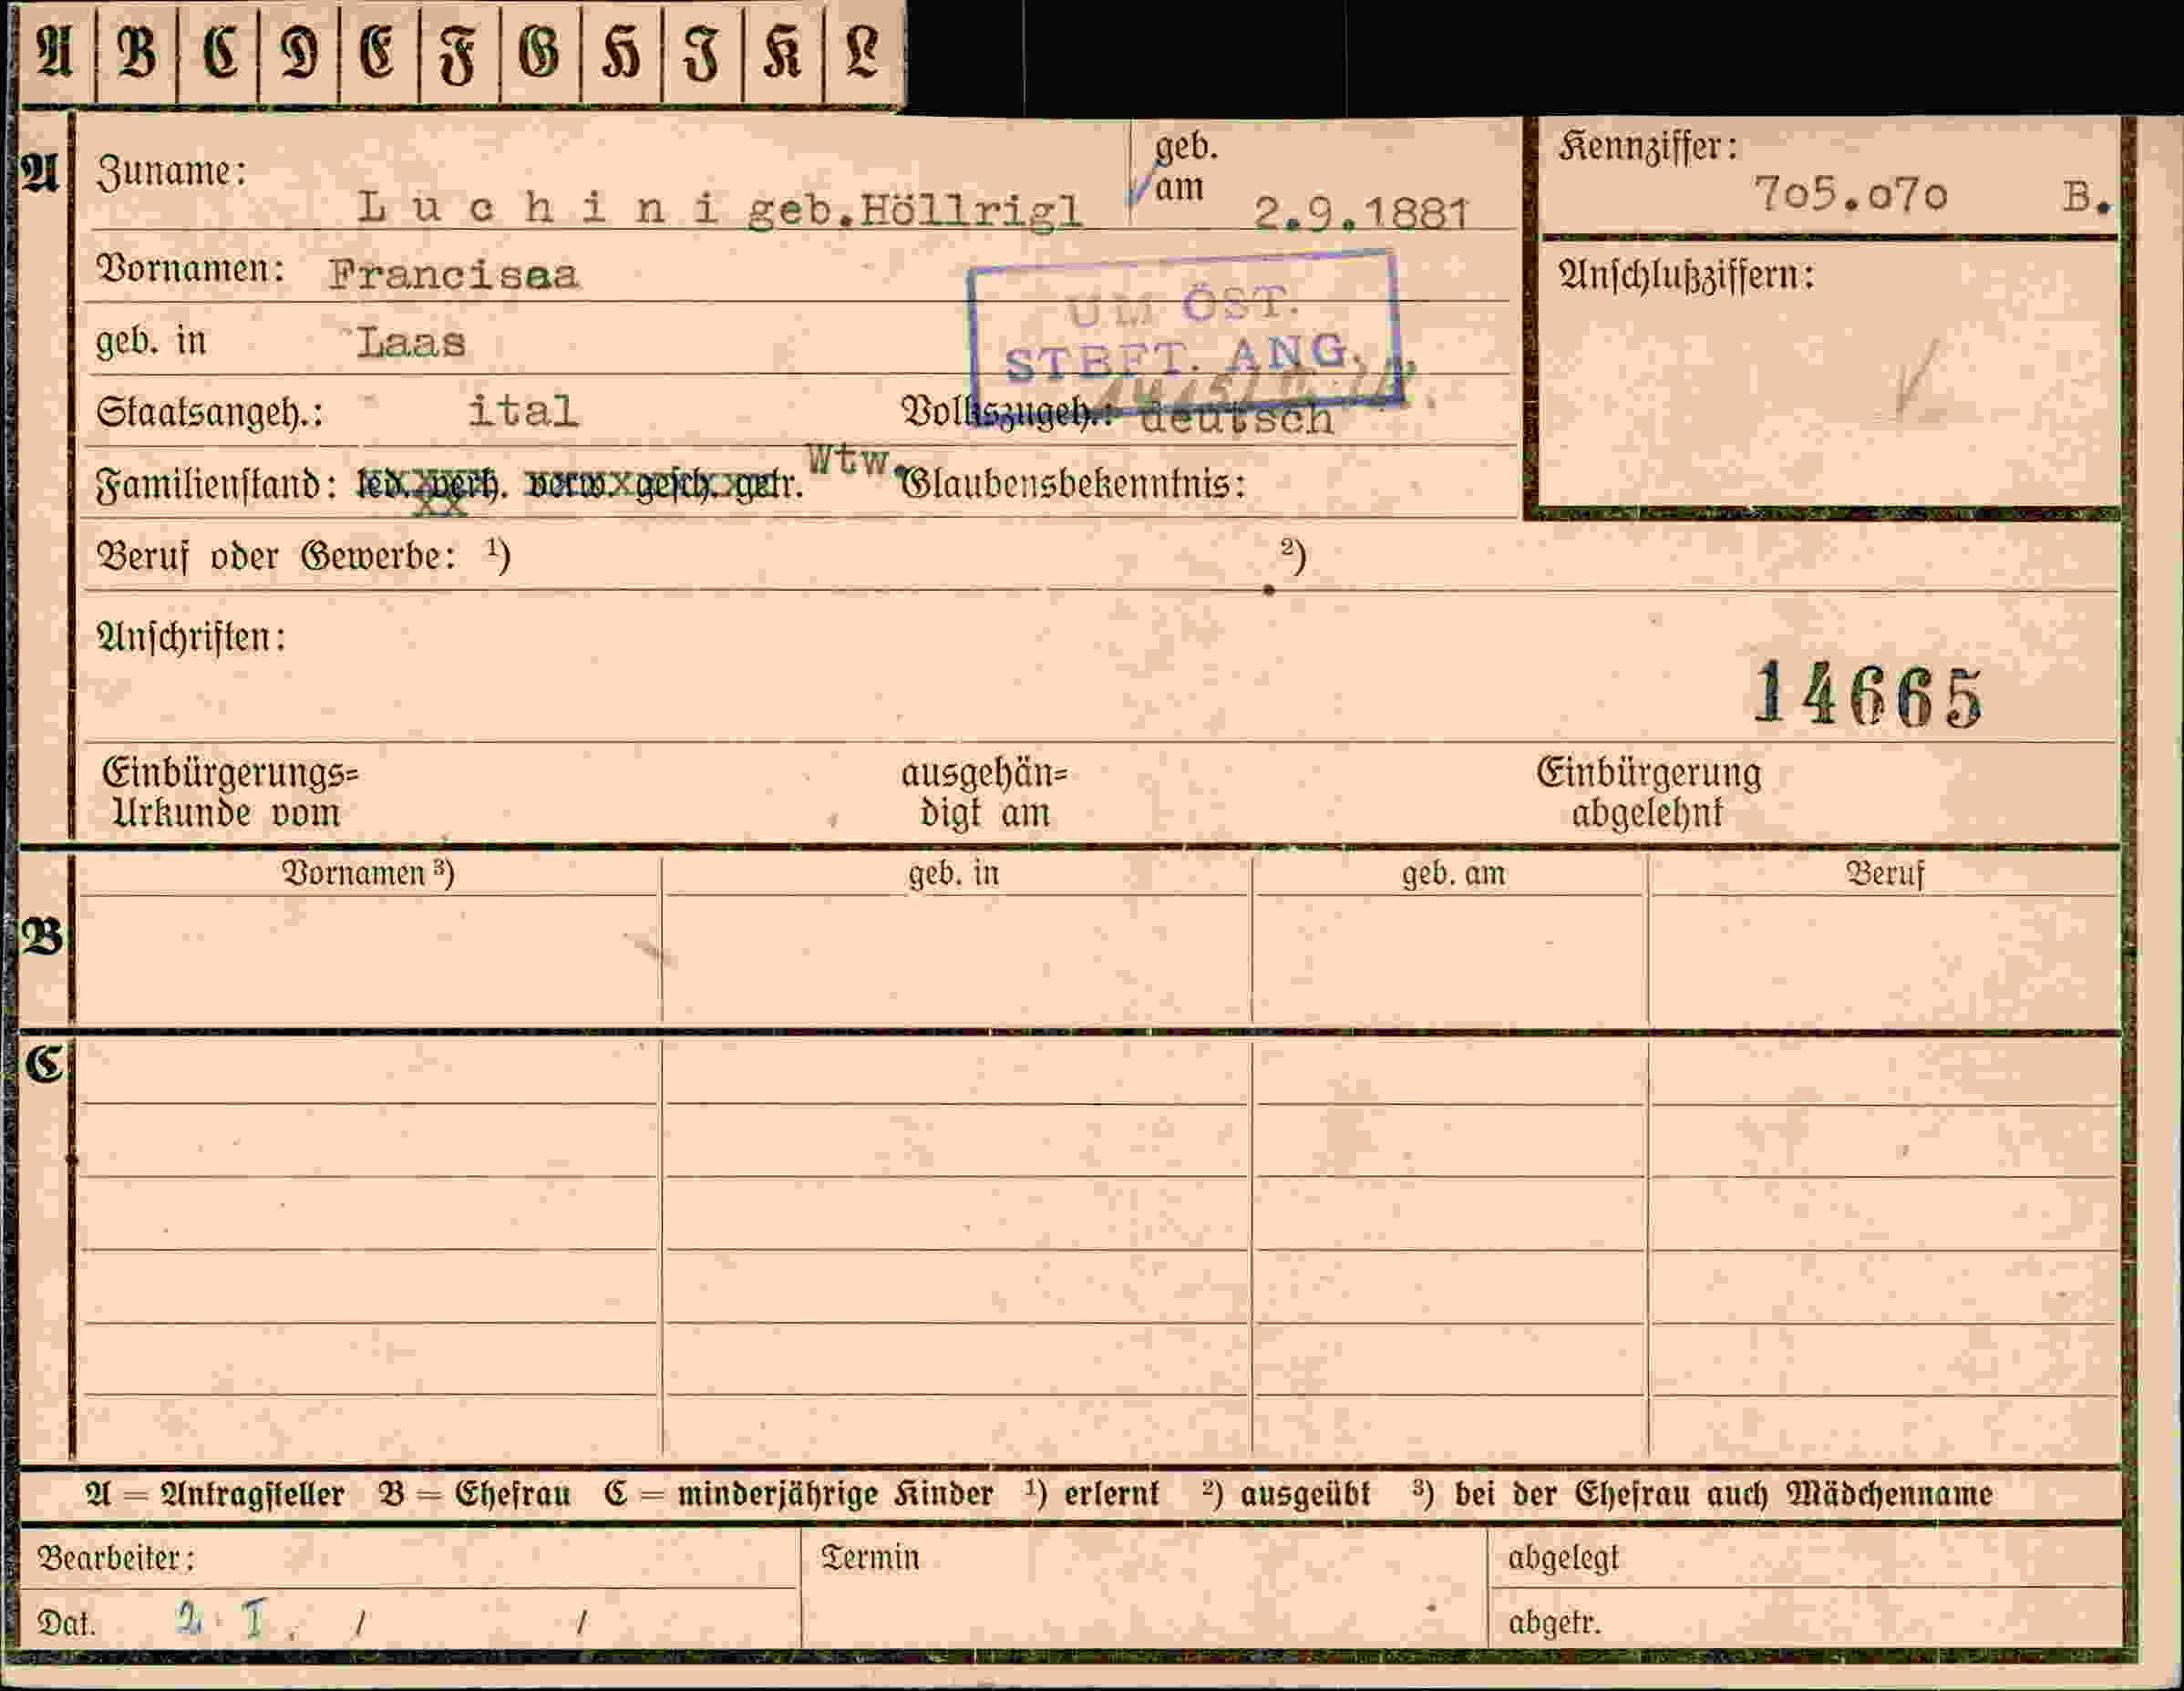 A B C D E F G H I K L
A Zuname: Luchini geb.Höllrigl geb. am 2.9.1881 Kennziffer: 705.070 B.
Vornamen: Francisaa Anschlußziffern:
UM ÖST.
geb. in Laas
STBFT. ANG.
Staatsangeh.: ital Volkszugeh.: deutsch
Familienstand: led. verh. verw. gesch. getr. Wtw. Glaubensbekenntnis:
Beruf oder Gewerbe: ¹) ²)
Anschriften:
14665
Einbürgerungs= ausgehän= Einbürgerung
Urkunde vom digt am abgelehnt
Vornamen ³) geb. in geb. am Beruf
B
C
A = Antragsteller B = Ehefrau C = minderjährige Kinder ¹) erlernt ²) ausgeübt ³) bei der Ehefrau auch Mädchenname
Bearbeiter: Termin abgelegt
Dat. 2. I. / / abgetr.